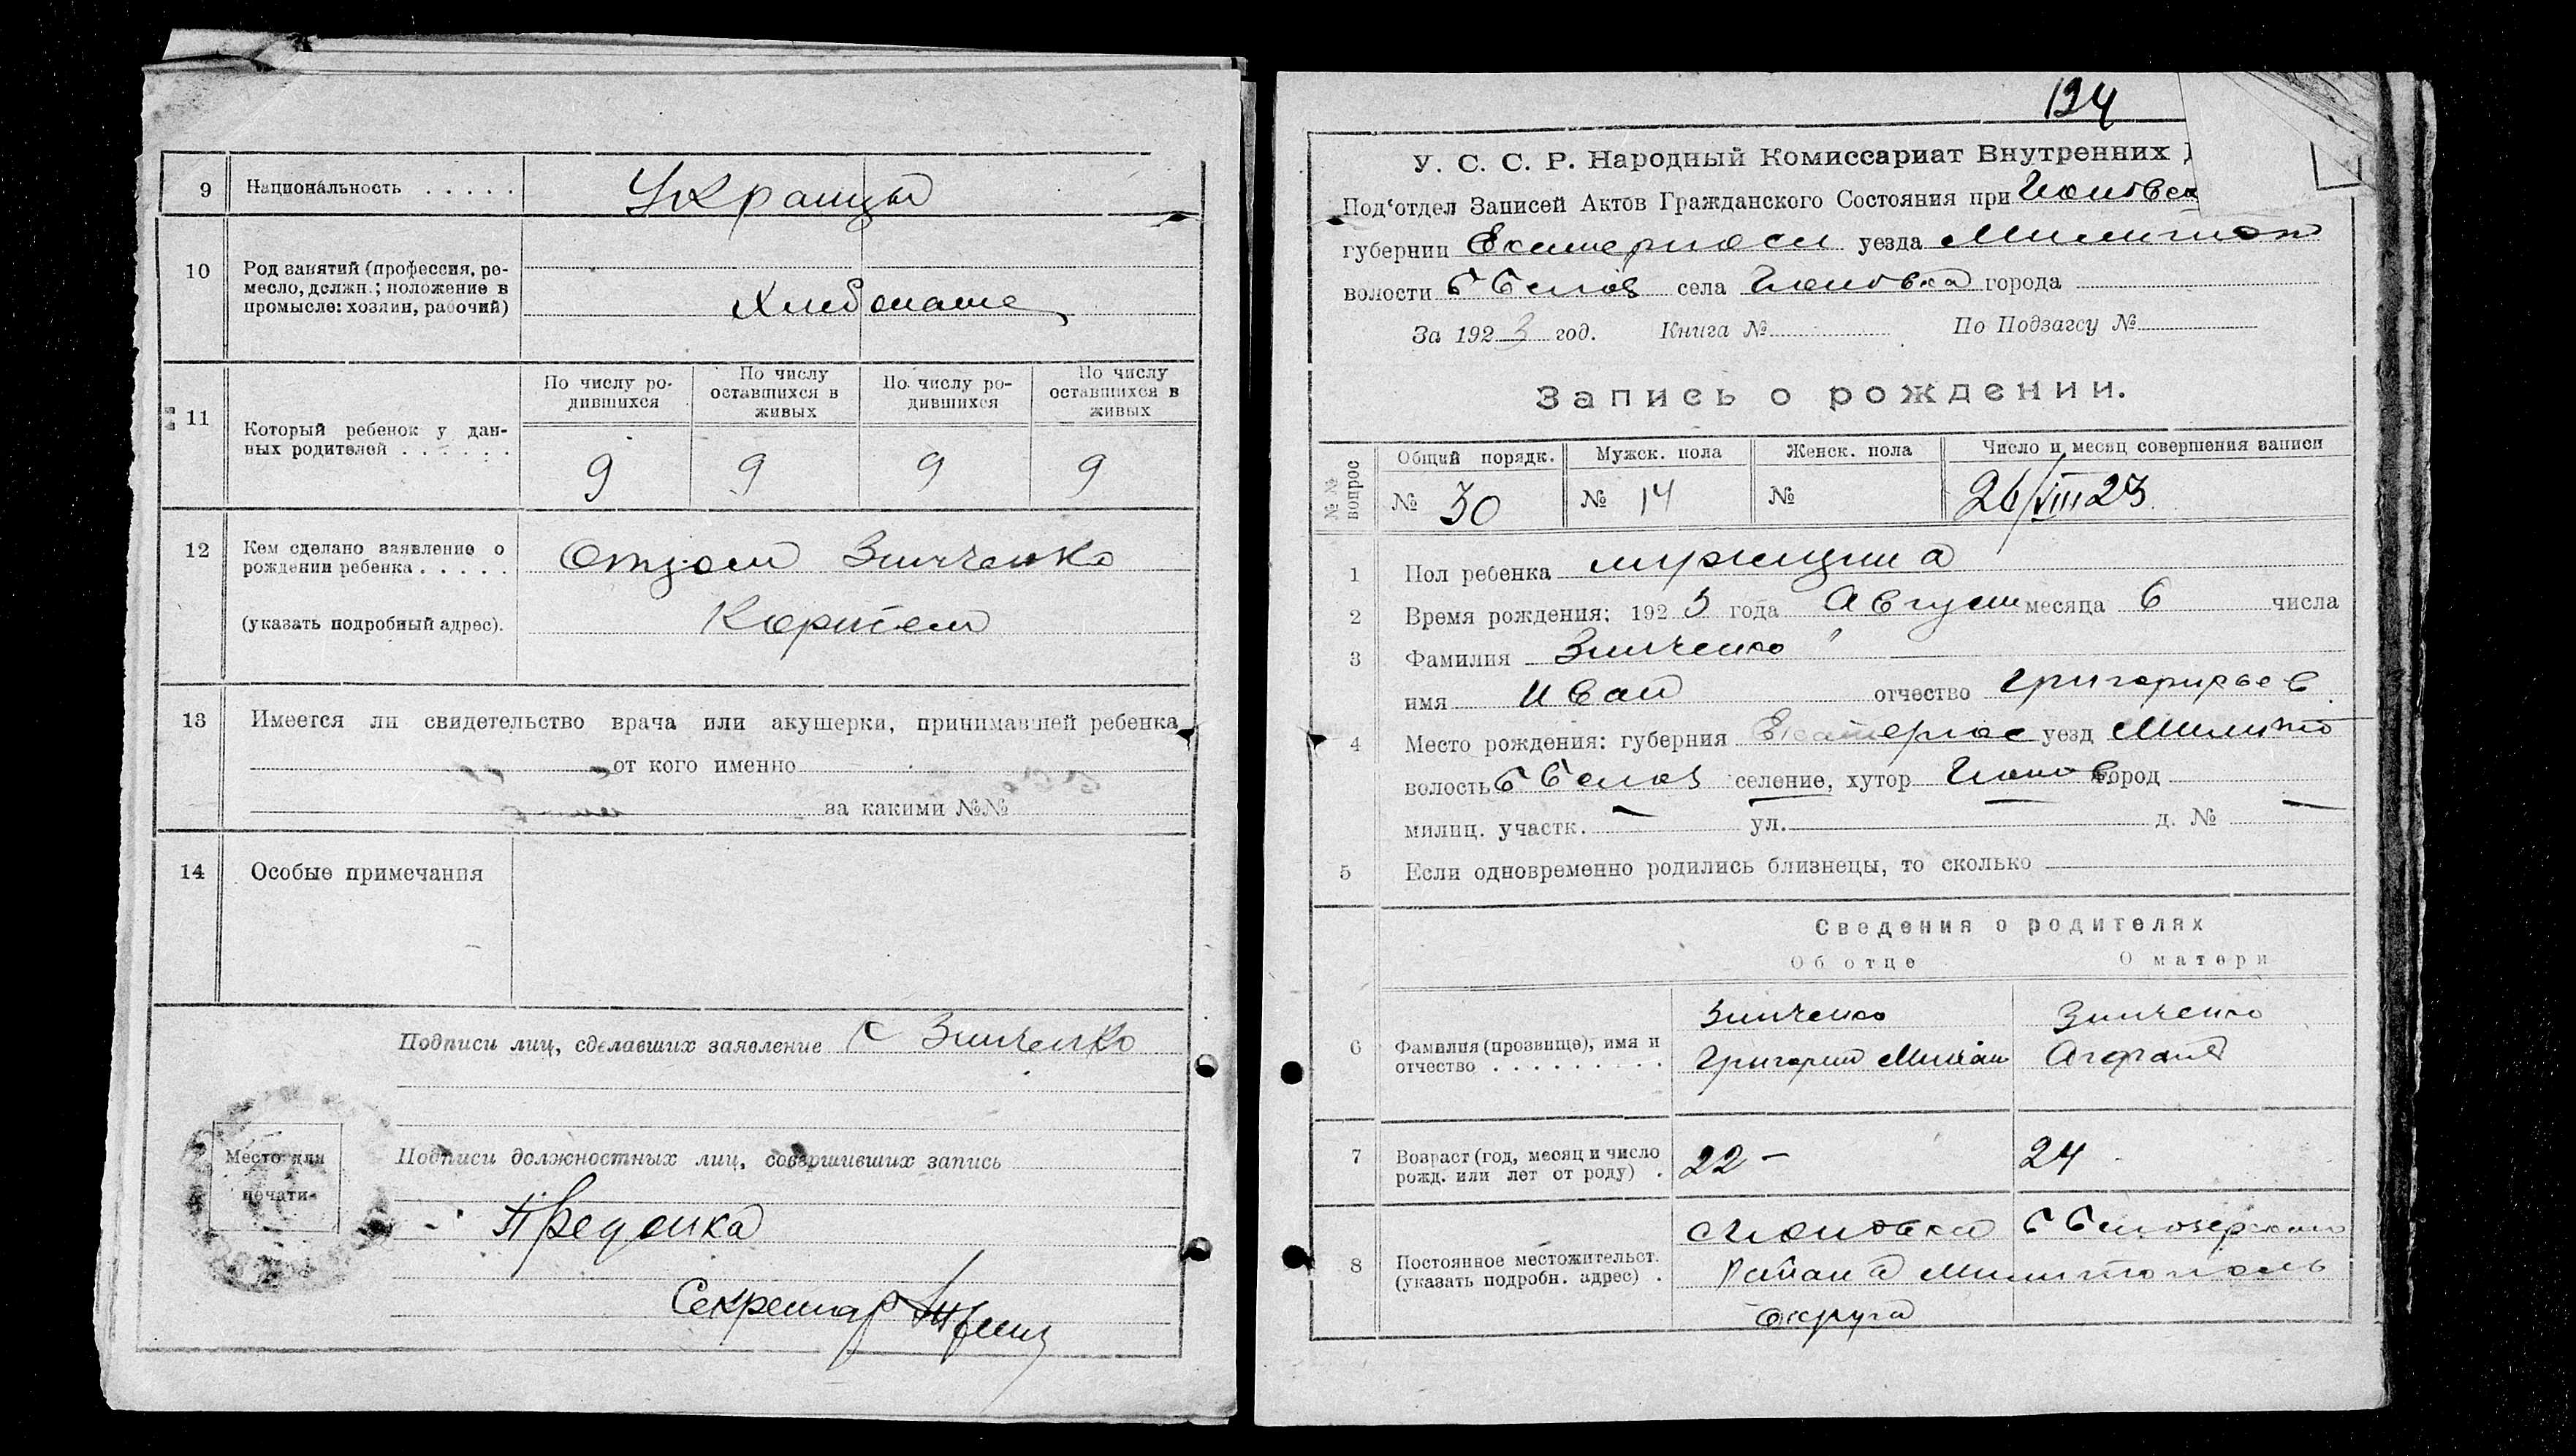 9 Национальность . . . . . Украинцы
10 Род занятий (профессия, ремесло, должн.; положение в промысле: хозяин, рабочий)
Хлебопаше
11 Который ребенок у данных родителей . . . . . .
По числу родившихся По числу оставшихся в живых По числу родившихся По числу оставшихся в живых
9 9 9 9
12 Кем сделано заявление о рождении ребенка . . . . . Отцом Зинченко
(указать подробный адрес).
13 Имеется ли свидетельство врача или акушерки, принимавшей ребенка
от кого именно
за какими №№
14 Особые примечания
Подписи лиц, сделавших заявление Зинченко
Подписи должностных лиц, совершивших запись
Место для
печати
Секретар
124
У. С. С. Р. Народный Комиссариат Внутренних
Под'отдел Записей Актов Гражданского Состояния при
губернии Екатеринос уезда Мелитоп
волости Б Белоз села города
За 1923 год. Книга № По Подзагсу №
Запись о рождении.
№№ вопрос Общий порядк. Мужск. пола Женск. пола Число и месяц совершения записи
№ 30 № 14 № 26/VIII 23
1 Пол ребенка мужщина
2 Время рождения: 1923 года Август месяца 6 числа
3 Фамилия Зинченко
имя Иван отчество Григорьев
4 Место рождения: губерния Екатеринос уезд Мелито
волость Б Белоз селение, хутор город
милиц. участк. ул. д. №
5 Если одновременно родились близнецы, то сколько
Сведения о родителях
Об отце О матери
6 Фамилия (прозвище), имя и отчество . . . . . . . . .
Зинченко Зинченко
Григорий Агафия
7 Возраст (год, месяц и число рожд. или лет от роду) . 22 – 24
8 Постоянное местожительст. (указать подробн. адрес) .
Б Белозерского
Района Мелитополь
округа